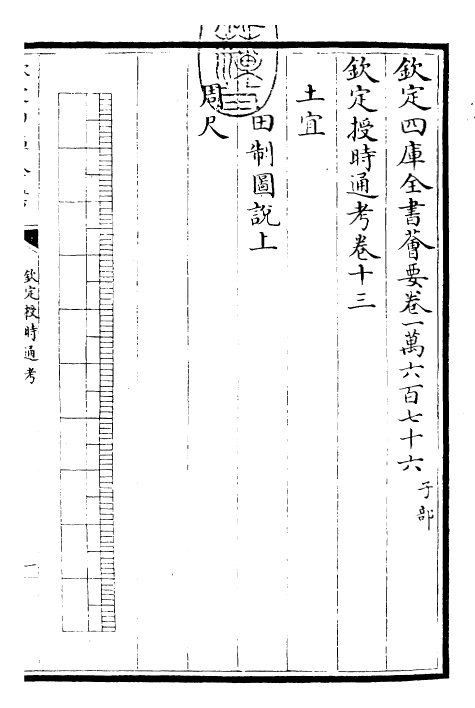 欽定四庫全書薈要卷一萬六百七十六 子部
欽定授時通考卷十三
土宜
田制圖說上
周尺
欽定授時通考
一